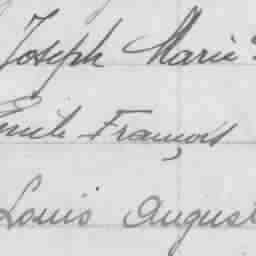 Joseph Marie
Emile François
Louis August